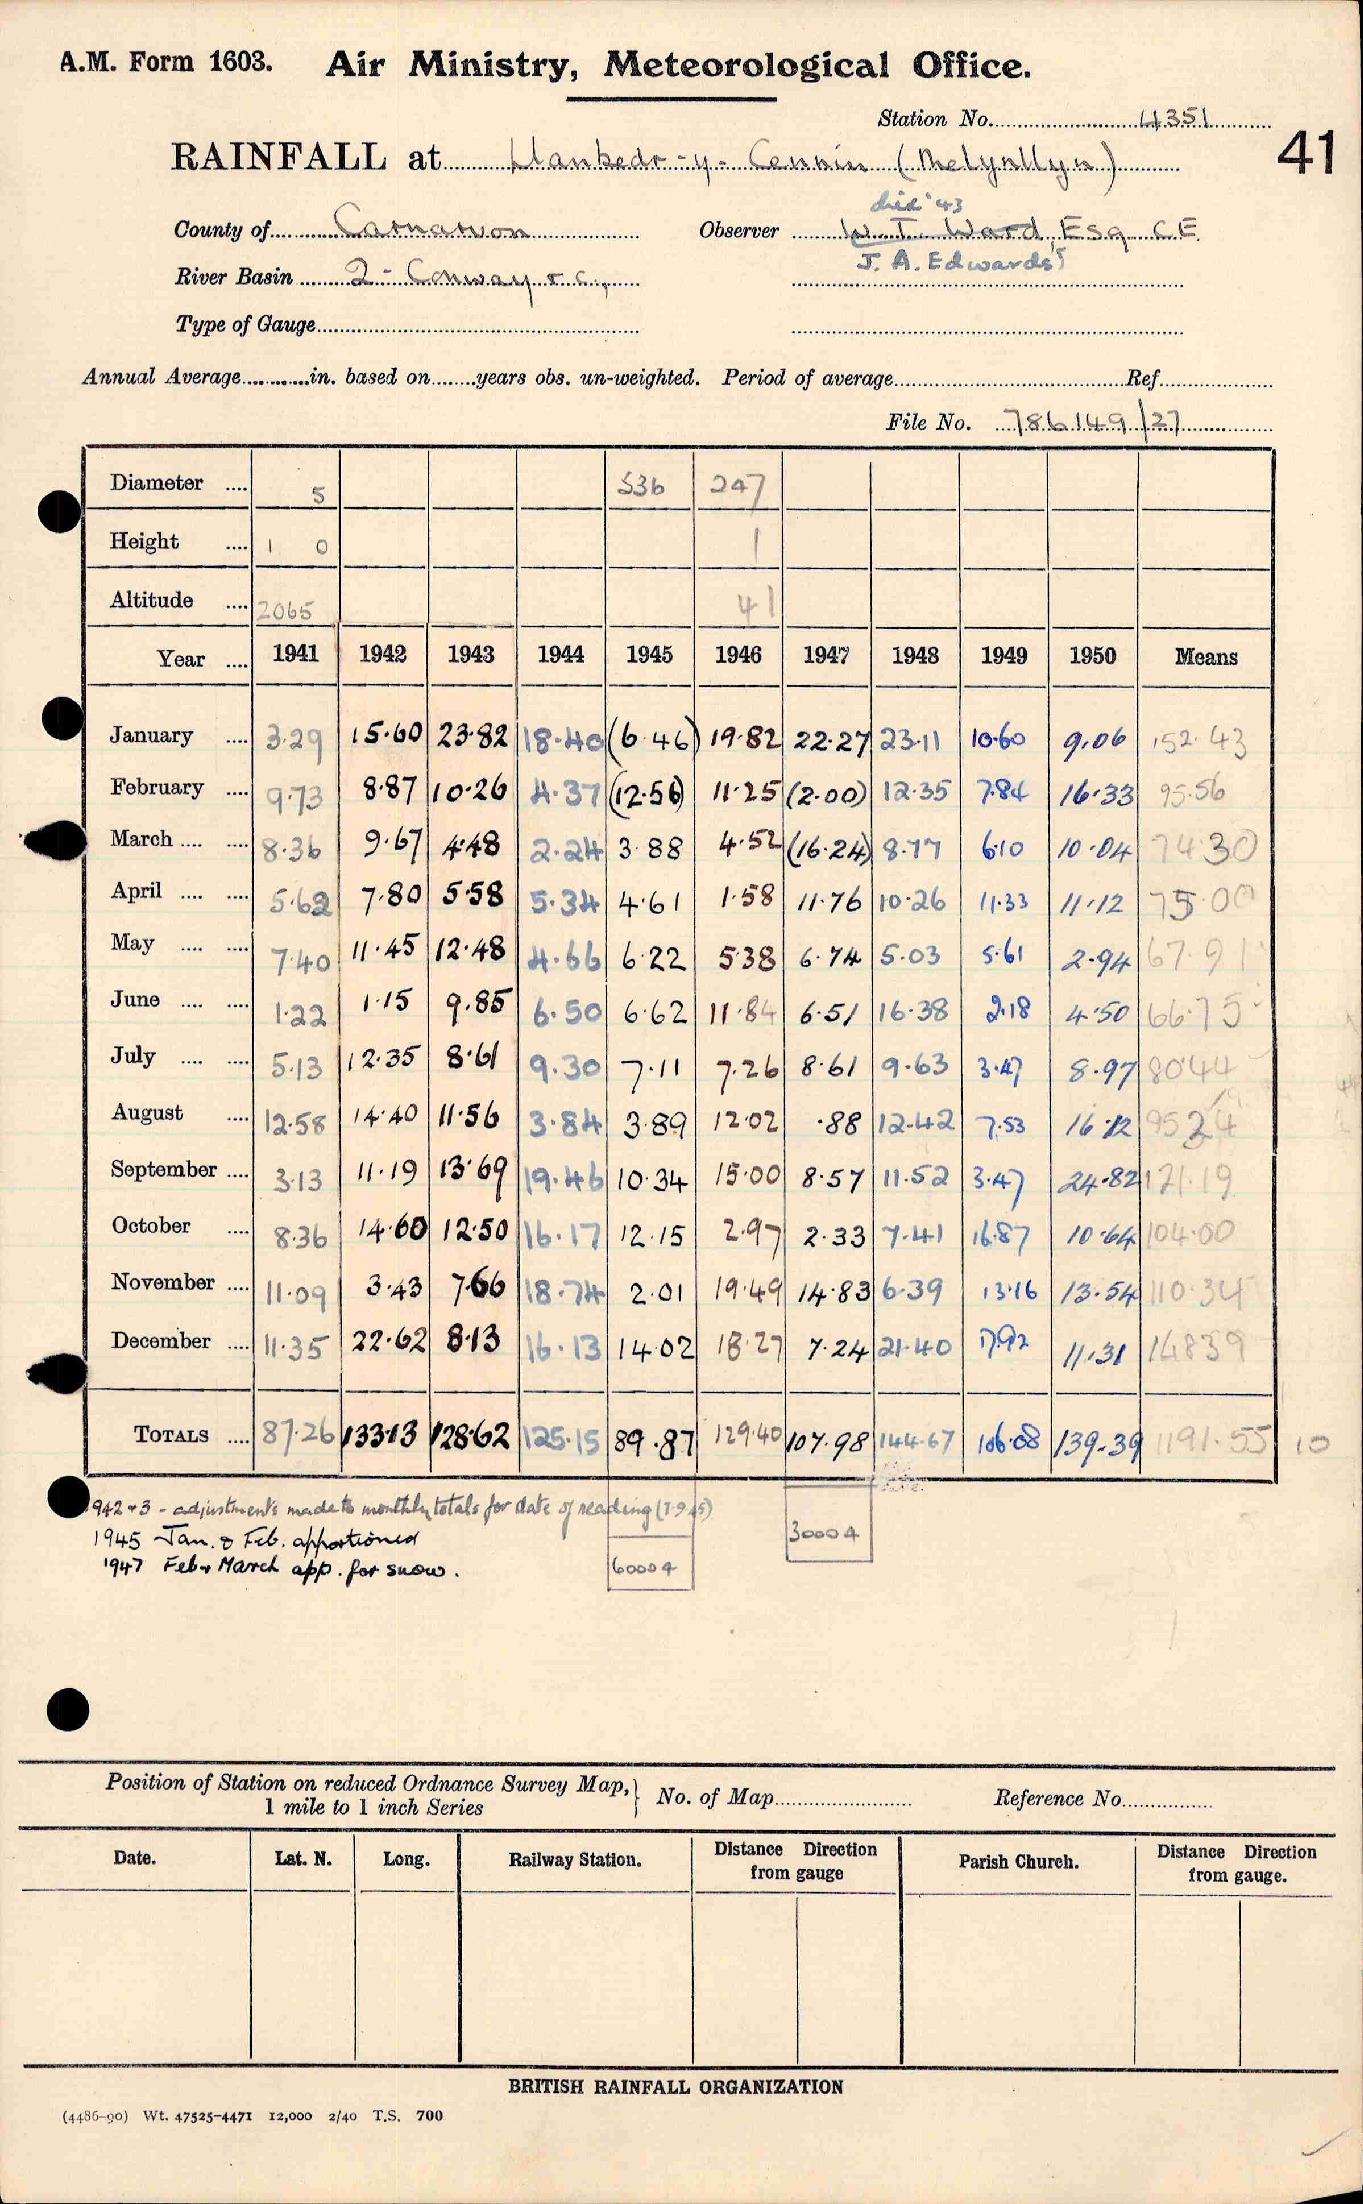 A.M. Form 1603. Air Ministry, Meteorological Office.
Station No. 4351
41
RAINFALL at Llanbedr-y-Cennin (Melynllyn)
died '43
County of Carnarvon Observer W. T. Ward, Esq C.E.
J. A. Edwards
River Basin 2 - Conway &c.,
Type of Gauge
Annual Average in. based on years obs. un-weighted. Period of average Ref.
File No. 786149/27
Diameter .... 5 536 247
Height .... 1 0 1
Altitude .... 2065 41
Year .... 1941 1942 1943 1944 1945 1946 1947 1948 1949 1950 Means
January .... 3.29 15.60 23.82 18.40 (6.46) 19.82 22.27 23.11 10.60 9.06 152.43
February .... 9.73 8.87 10.26 4.37 (12.56) 11.25 (2.00) 12.35 7.84 16.33 95.56
March .... .... 8.36 9.67 4.48 2.24 3.88 4.52 (16.24) 8.77 6.10 10.04 74.30
April .... .... 5.62 7.80 5.58 5.34 4.61 1.58 11.76 10.26 11.33 11.12 75.00
May .... .... 7.40 11.45 12.48 4.66 6.22 5.38 6.74 5.03 5.61 2.94 67.91
June .... .... 1.22 1.15 9.85 6.50 6.62 11.84 6.51 16.38 2.18 4.50 66.75
July .... .... 5.13 12.35 8.61 9.30 7.11 7.26 8.61 9.63 3.47 8.97 80.44
August .... 12.58 14.40 11.56 3.84 3.89 12.02 .88 12.42 7.53 16.12 95.24
September .... 3.13 11.19 13.69 19.46 10.34 15.00 8.57 11.52 3.47 24.82 121.19
October .... 8.36 14.60 12.50 16.17 12.15 2.97 2.33 7.41 16.87 10.64 104.00
November .... 11.09 3.43 7.66 18.74 2.01 19.49 14.83 6.39 13.16 13.54 110.34
December .... 11.35 22.62 8.13 16.13 14.02 18.27 7.24 21.40 17.92 11.31 148.39
TOTALS .... 87.26 133.13 128.62 125.15 89.87 129.40 107.98 144.67 106.08 139.39 1191.55 10
942+3 - adjustments made to monthly totals for date of reading (7.9.45)
1945 Jan. & Feb. apportioned 30004
1947 Feb + March app. for snow. 60004
Position of Station on reduced Ordnance Survey Map, 1 mile to 1 inch Series } No. of Map Reference No.
Date. Lat. N. Long. Railway Station. Distance Direction from gauge Parish Church. Distance Direction from gauge.
BRITISH RAINFALL ORGANIZATION
(4486-90) Wt. 47525-4471 12,000 2/40 T.S. 700